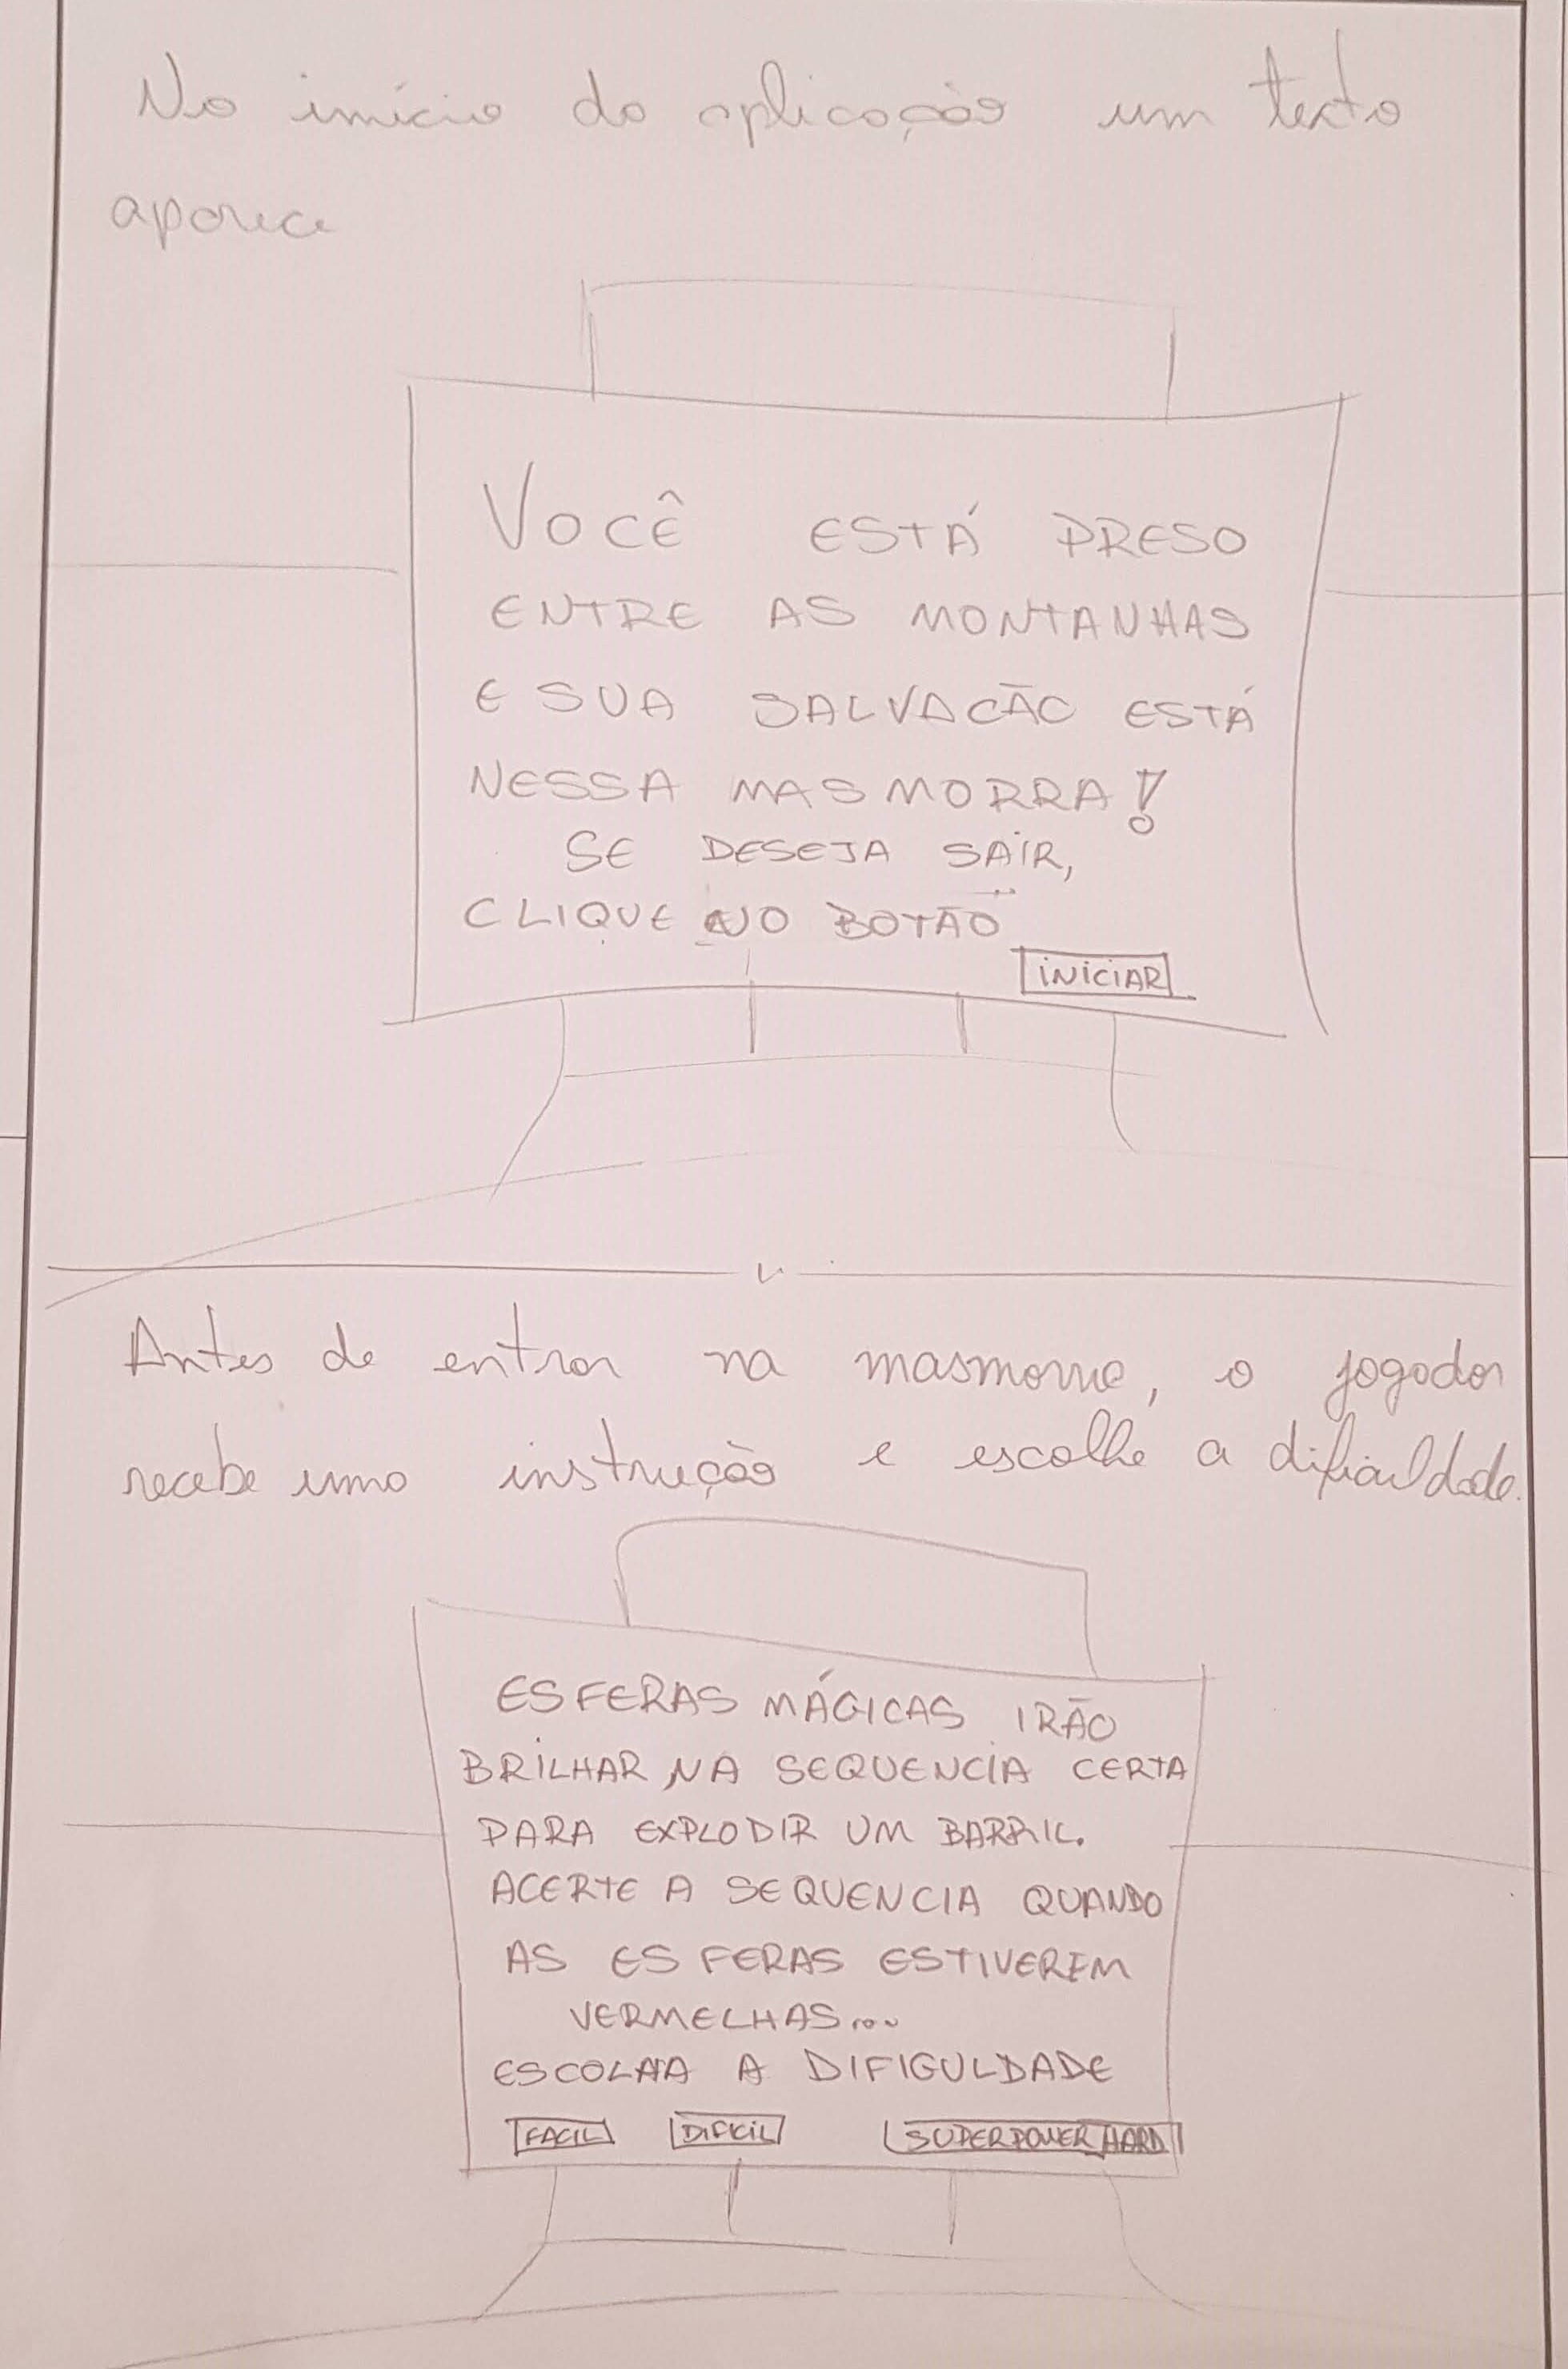 No início da aplicação um texto
aparece
VOCÊ ESTÁ PRESO
ENTRE AS MONTANHAS
E SUA SALVACÃO ESTÁ
NESSA MASMORRA!
SE DESEJA SAIR,
CLIQUE NO BOTÃO
INICIAR
Antes de entrar na masmorra, o jogador
recebe uma instrução e escolhe a dificuldade.
ESFERAS MÁGICAS IRÃO
BRILHAR NA SEQUENCIA CERTA
PARA EXPLODIR UM BARRIL.
ACERTE A SEQUENCIA QUANDO
AS ESFERAS ESTIVEREM
VERMELHAS...
ESCOLHA A DIFIGULDADE
FACIL DIFICIL SUPERPOWER HARD